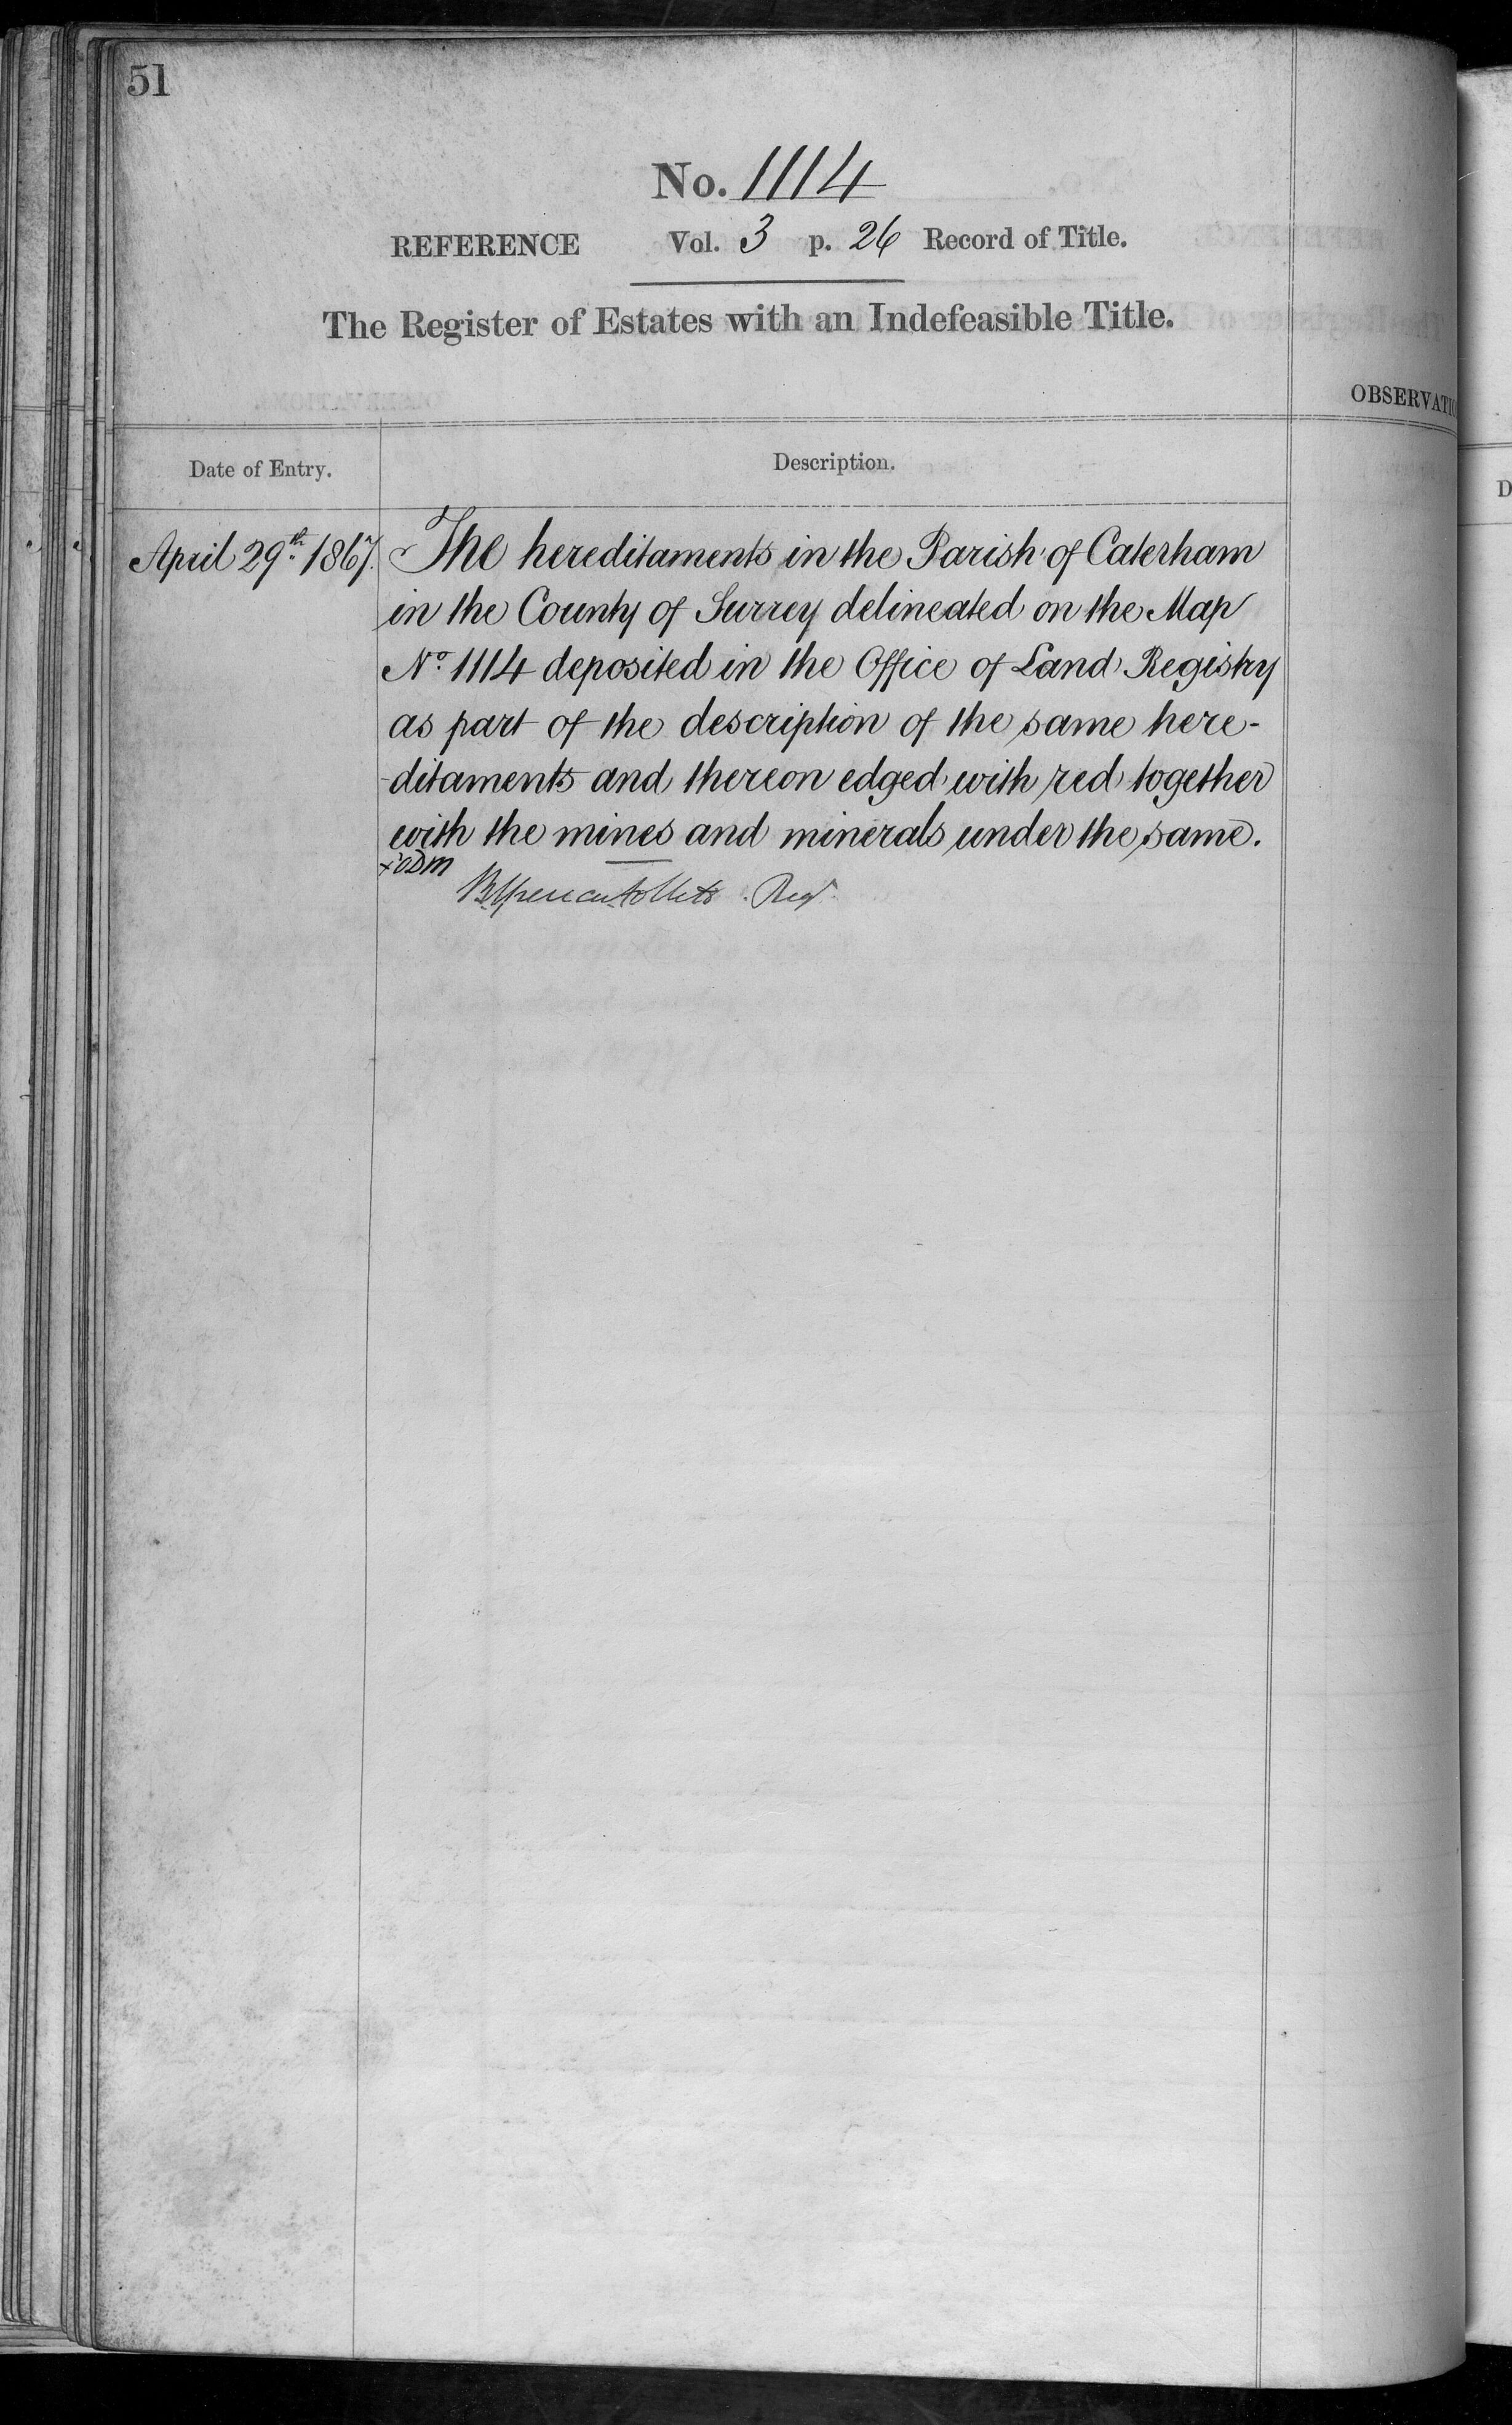 51
No. 1114
REFERENCE Vol. 3 p. 26 Record of Title.
The Register of Estates with an Indefeasible Title.
OBSERVATIO
Date of Entry.
Description.
D
April 29th 1867.
The hereditaments in the Parish of Caterham
in the County of Surrey delineated on the Map
No. 1114 deposited in the Office of Land Registry
as part of the description of the same here-
-ditaments and thereon edged with red together
with the mines and minerals under the same.
Regr.